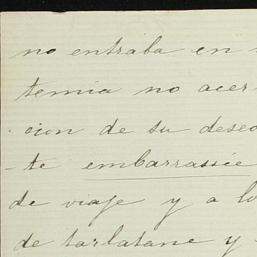 no entraba en
temia no acer-
cion de su deseo
-te embarrassée
de viaje y a lo
de tarlatane y